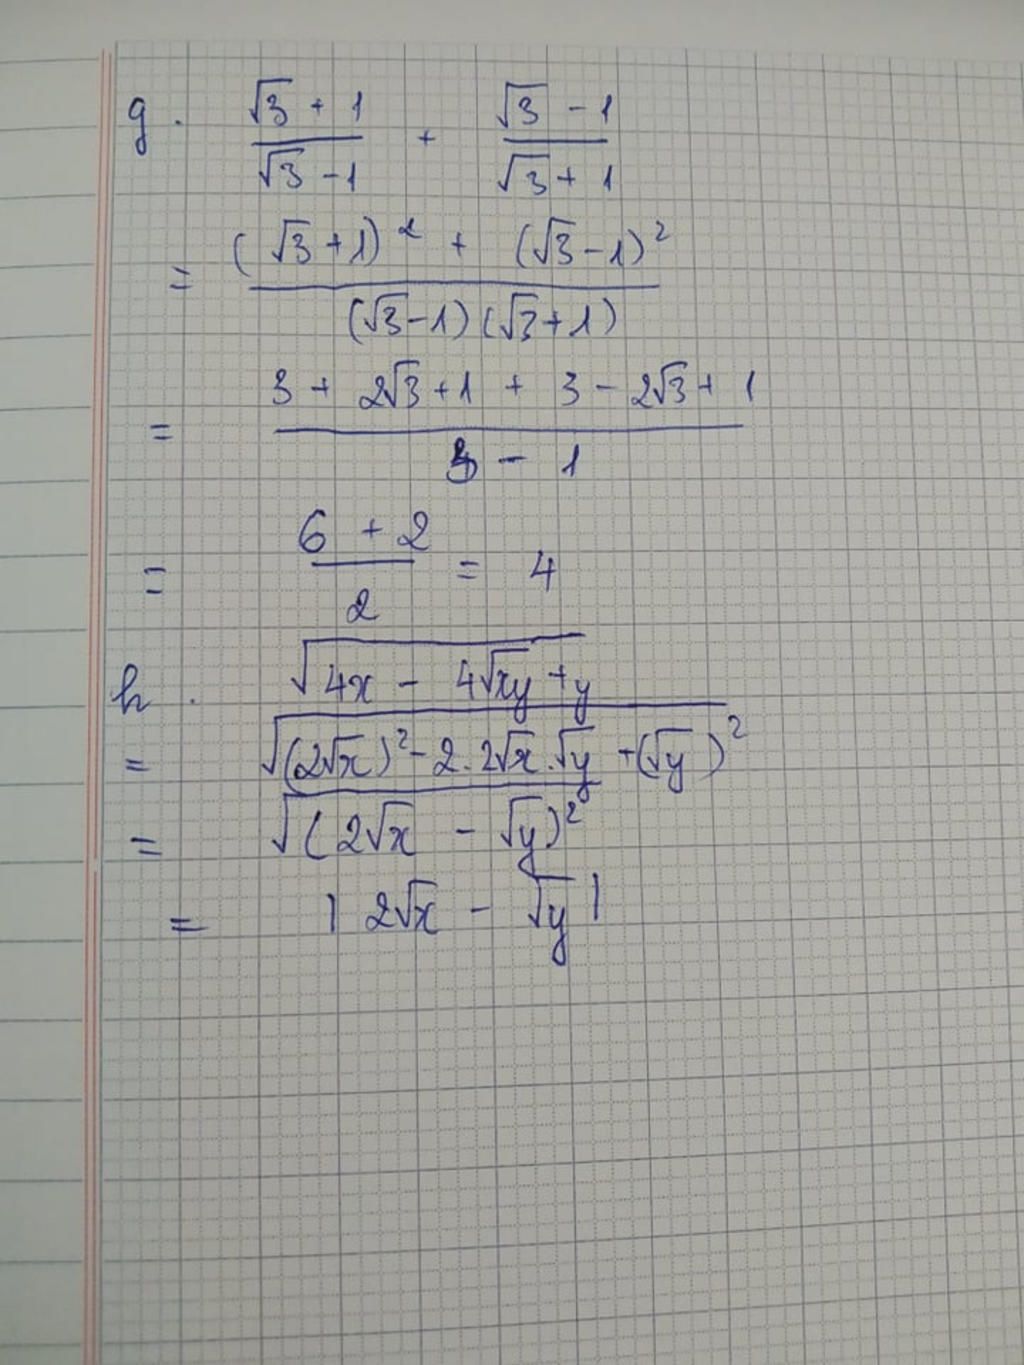 g. (√3 + 1)/(√3 - 1) + (√3 - 1)/(√3 + 1)
= ((√3 + 1)² + (√3 - 1)²)/((√3 - 1)(√3 + 1))
= (3 + 2√3 + 1 + 3 - 2√3 + 1)/(3 - 1)
= (6 + 2)/2 = 4
h. √(4x - 4√xy + y)
= √((2√x)² - 2.2√x.√y + (√y)²)
= √((2√x - √y)²)
= |2√x - √y|